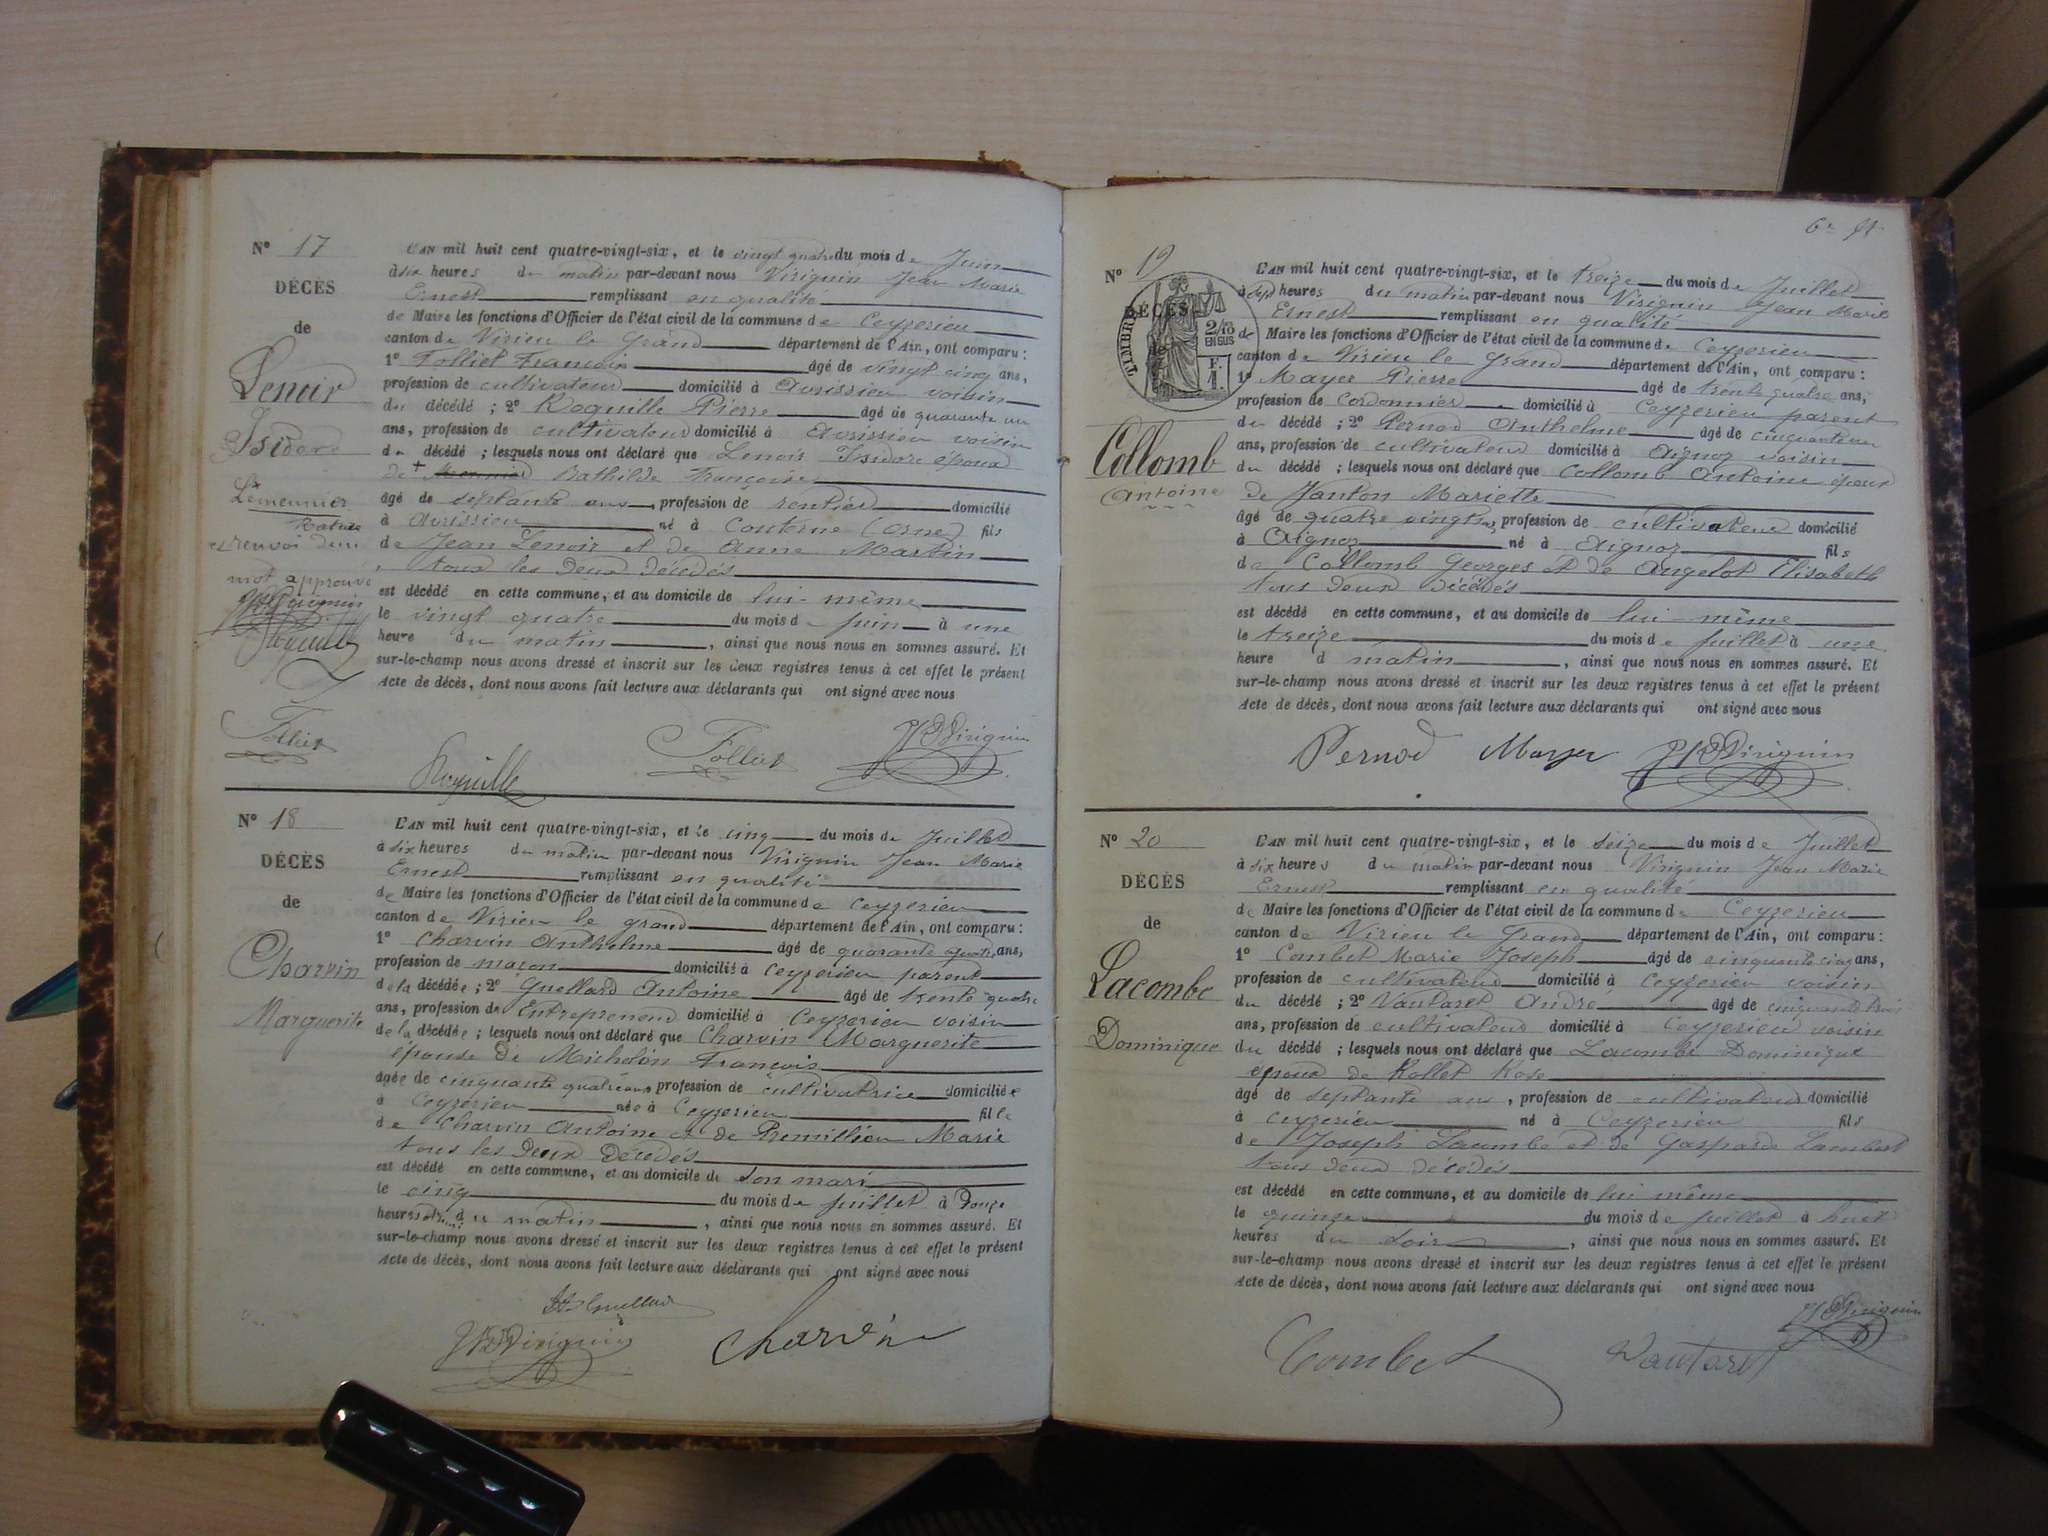 N° 17
DÉCÈS
de
Lenoir
Isidore
Lemeunier
Rature
et renvoi d'un
mot approuvé
L'AN mil huit cent quatre-vingt-six, et le vingt quatre du mois de Juin
à six heures du matin par-devant nous Viriguin Jean Marie
Ernest remplissant en qualité
de Maire les fonctions d'Officier de l'état civil de la commune de Ceyzerieu
canton de Virieu le Grand département de l'Ain, ont comparu :
1° Folliet François âgé de vingt cinq ans,
profession de cultivateur domicilié à Avrissieu voisin
du décédé ; 2° Roquille Pierre âgé de quarante un
ans, profession de cultivateur domicilié à Avrissieu voisin
du décédé ; lesquels nous ont déclaré que Lenoir Isidore époux
de + Bathilde Françoise
âgé de septante ans, profession de rentier domicilié
à Avrissieu né à Couterne (Orne) fils
de Jean Lenoir et de Anne Martin
tous les deux décédés
est décédé en cette commune, et au domicile de lui-même
le vingt quatre du mois de juin à une
heure du matin, ainsi que nous nous en sommes assuré. Et
sur-le-champ nous avons dressé et inscrit sur les deux registres tenus à cet effet le présent
Acte de décès, dont nous avons fait lecture aux déclarants qui ont signé avec nous
Folliet Roquille Folliet Viriguin
N° 18
DÉCÈS
de
Charvin
Marguerite
L'AN mil huit cent quatre-vingt-six, et le cinq du mois de Juillet
à six heures du matin par-devant nous Viriguin Jean Marie
Ernest remplissant en qualité
de Maire les fonctions d'Officier de l'état civil de la commune de Ceyzerieu
canton de Virieu le grand département de l'Ain, ont comparu :
1° Charvin Anthelme âgé de quarante quatre ans,
profession de maçon domicilié à Ceyzerieu parent
de la décédée ; 2° Guellard Antoine âgé de trente quatre
ans, profession de Entrepreneur domicilié à Ceyzerieu voisin
de la décédée ; lesquels nous ont déclaré que Charvin Marguerite
épouse de Michelon François
âgée de cinquante quatre ans, profession de cultivatrice domiciliée
à Ceyzerieu née à Ceyzerieu fille
de Charvin Antoine et de Premillieu Marie
tous les deux décédés
est décédé en cette commune, et au domicile de son mari
le cinq du mois de juillet à douze
heures du matin, ainsi que nous nous en sommes assuré. Et
sur-le-champ nous avons dressé et inscrit sur les deux registres tenus à cet effet le présent
Acte de décès, dont nous avons fait lecture aux déclarants qui ont signé avec nous
Guellard
Viriguin Charvin
N° 19
DÉCÈS
de
TIMBRE
2/10
EN SUS
F.
1.
Collomb
Antoine
L'AN mil huit cent quatre-vingt-six, et le treize du mois de Juillet
à sept heures du matin par-devant nous Viriguin Jean Marie
Ernest remplissant en qualité
de Maire les fonctions d'Officier de l'état civil de la commune de Ceyzerieu
canton de Virieu le Grand département de l'Ain, ont comparu :
1° Mayer Pierre âgé de trente quatre ans,
profession de Cordonnier domicilié à Ceyzerieu parent
du décédé ; 2° Pernod Anthelme âgé de cinquante un
ans, profession de cultivateur domicilié à Aignoz voisin
du décédé ; lesquels nous ont déclaré que Collomb Antoine époux
de Janton Mariette
âgé de quatre vingts, profession de cultivateur domicilié
à Aignoz né à Aignoz fils
de Collomb Georges et de Angelot Elisabeth
tous deux décédés
est décédé en cette commune, et au domicile de lui-même
le treize du mois de juillet à une
heure d matin, ainsi que nous nous en sommes assuré. Et
sur-le-champ nous avons dressé et inscrit sur les deux registres tenus à cet effet le présent
Acte de décès, dont nous avons fait lecture aux déclarants qui ont signé avec nous
Pernod Mayer Viriguin
N° 20
DÉCÈS
de
Lacombe
Dominique
L'AN mil huit cent quatre-vingt-six, et le seize du mois de Juillet
à six heures du matin par-devant nous Viriguin Jean Marie
Ernest remplissant en qualité
de Maire les fonctions d'Officier de l'état civil de la commune de Ceyzerieu
canton de Virieu le Grand département de l'Ain, ont comparu :
1° Combet Marie Joseph âgé de cinquante cinq ans,
profession de cultivateur domicilié à Ceyzerieu voisin
du décédé ; 2° Vautaret André âgé de cinquante trois
ans, profession de cultivateur domicilié à Ceyzerieu voisin
du décédé ; lesquels nous ont déclaré que Lacombe Dominique
époux de Rollet Rose
âgé de septante ans, profession de cultivateur domicilié
à Ceyzerieu né à Ceyzerieu fils
de Joseph Lacombe et de Gasparde Lambert
tous deux décédés
est décédé en cette commune, et au domicile de lui même
le quinze du mois de juillet à huit
heures du soir, ainsi que nous nous en sommes assuré. Et
sur-le-champ nous avons dressé et inscrit sur les deux registres tenus à cet effet le présent
Acte de décès, dont nous avons fait lecture aux déclarants qui ont signé avec nous
Viriguin
Combet Vautaret